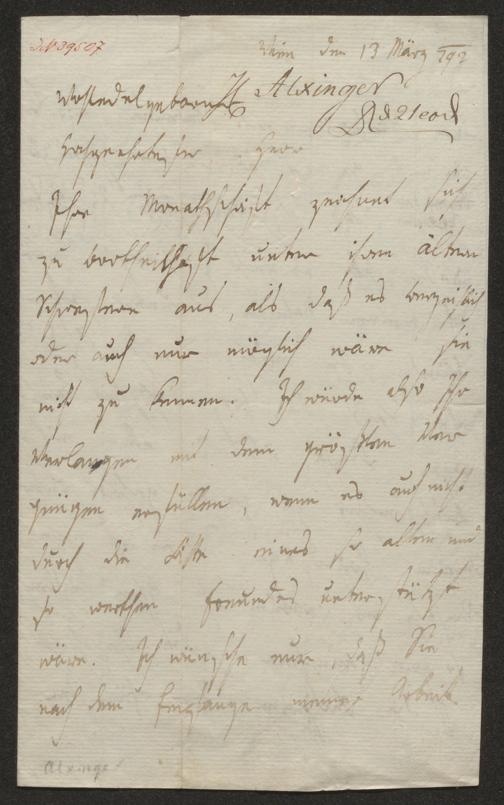 Wien den 13 März 792
Alxinger
Wohledelgeborner
Hochgeehrtester Herr
Ihre Monathschrift zeichnet sich
zu vortheilhaft unter ihren ältern
Schwestern aus, als daß es verzeihlich
oder auch nur möglich wäre sie
nicht zu kennen. Ich würde also Ihr
Verlangen mit dem größten Ver
gnügen erfüllen, wenn es auch nicht
durch die Bitte eines so alten und
so werthen Freundes unterstützt
wäre. Ich wünsche nur, daß Sie
nach dem Empfange meiner Arbeit
Alxinger